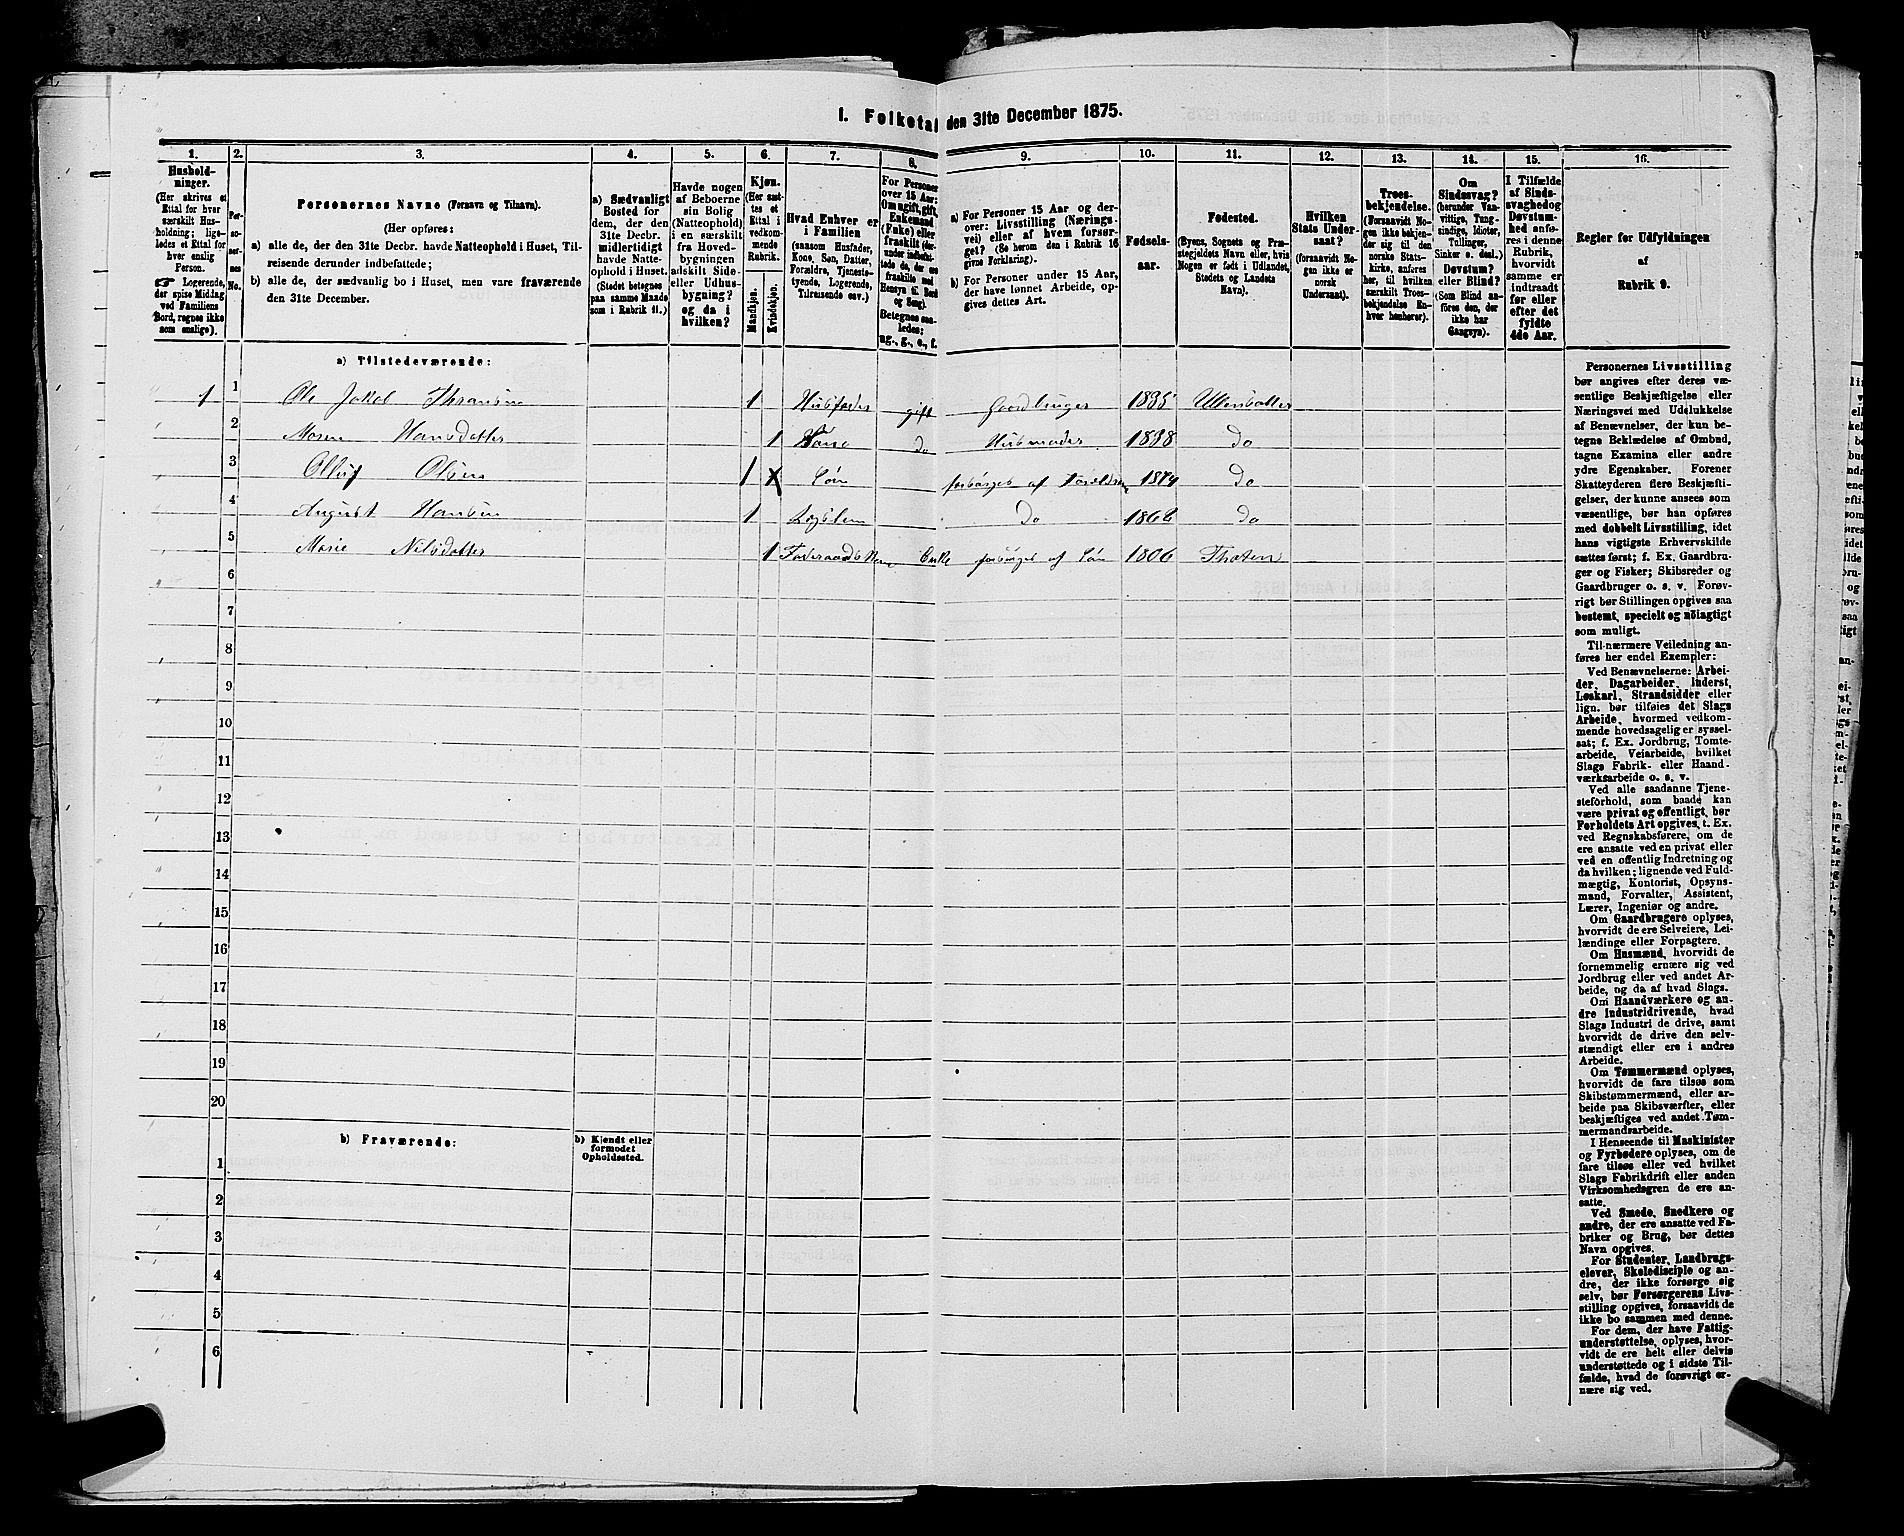 1. Folketal den 31te December 1875.
1. 2. 3. 4. 5. 6. 7. 8. 9. 10. 11. 12. 13. 14. 15. 16.
Hushold-
ninger.
(Her skrives et
Ettal for hver
særskilt Hus-
holdning; lige-
ledes et Ettal for
hver enslig
Person.
☞ Logerende,
der spise Middag
ved Familiens
Bord, regnes ikke
som enslige).
Per-
so-
ner-
nes
No.
Personernes Navne (Fornavn og Tilnavn).
(Her opføres:
a) alle de, der den 31te Decbr. havde Natteophold i Huset, Til-
reisende derunder indbefattede;
b) alle de, der sædvanlig bo i Huset, men vare fraværende
den 31te December.
a) Sædvanligt
Bosted for
dem, der den
31te Decbr.
midlertidigt
havde Natte-
ophold i Huset.
(Stedet betegnes
paa samme Maade
som i Rubrik 11.)
Havde nogen
af Beboerne
sin Bolig
(Natteophold)
i en særskilt
fra Hoved-
bygningen
adskilt Side-
eller Udhus-
bygning?
og da i
hvilken?
Kjøn.
(Her sæt-
tes et
Ettal i
vedkom-
mende
Rubrik.
Mandkjøn.
Kvindekjøn.
Hvad Enhver er
i Familien
(saasom Husfader,
Kone, Søn, Datter,
Forældre, Tjeneste-
tyende, Logerende,
Tilreisende osv.)
For Personer
over 15 Aar:
Om ugift, gift,
Enkemand
(Enke) eller
fraskilt (der-
under indbefat-
tede de, der ere
fraskilte med
Hensyn til Bord
og Seng).
Betegnes saa-
ledes:
ug., g., e., f.
a) For Personer 15 Aar og der-
over: Livsstilling (Nærings-
vei) eller af hvem forsør-
get. (Se herom den i Rubrik 16
givne Forklaring).
b) For Personer under 15 Aar,
der have lønnet Arbeide, op-
gives dettes Art.
Fødsels-
aar.
Fødested.
(Byens, Sognets og Præ-
stegjeldets Navn eller, hvis
Nogen er født i Udlandet,
Stedets og Landets
Navn).
Hvilken
Stats Under-
saat?
(forsaavidt No-
gen ikke er
norsk
Undersaat).
Troes-
bekjendelse.
(Forsaavidt No-
gen ikke bekjen-
der sig til den
norske Stats-
kirke, anføres
her, til hvilken
særskilt Troes-
bekjendelse En-
hver henhører).
Om
Sindssvag?
(herunder Van-
vittige, Tung-
sindige, Idioter,
Tullinger,
Sinker o. desl.)
Døvstum?
eller Blind?
(Som Blind an-
føres den, der
ikke har
Gangsyn).
I Tilfælde
af Sinds-
svaghed og
Døvstum-
hed anfø-
res i denne
Rubrik,
hvorvidt
samme er
indtraadt
før eller
efter det
fyldte
4de Aar.
Regler for Udfyldningen
af
Rubrik 9.
a) Tilstedeværende:
1 1 Ole Jakob Thransen 1 Husfader gift Gaardbruger 1835 Ullensaker
2 Maren Hansdatter 1 Kone do Husmoder 1838 Do
3 Olluf Olsen 1 Søn forsørges af Forældrene 1874 Do
4 August Hansen 1 Lægslem Do 1866 Do
5 Marie Nilsdatter 1 Enke forsørges af Søn 1806 Thoten
6
7
8
9
10
11
12
13
14
15
16
17
18
19
20
b) Fraværende:
b) Kjendt eller
formodet
Opholdssted.
1
2
3
4
5
6
Personernes Livsstilling
bør angives efter deres væ-
sentlige Beskjæftigelse eller
Næringsvei med Udelukkelse
af Benævnelser, der kun be-
tegne Beklædelse af Ombud,
tagne Examina eller andre
ydre Egenskaber. Forener
Skatteyderen flere Beskjæfti-
gelser, der kunne ansees som
væsentlige, bør han opføres
med dobbelt Livsstilling, idet
hans vigtigste Erhvervskilde
sættes først; f. Ex. Gaardbru-
ger og Fisker; Skibsreder og
Gaardbruger o. s. v. Forøv-
rigt bør Stillingen opgives saa
bestemt, specielt og nöiagtigt
som muligt.
Til nærmere Veiledning an-
føres her endel Exempler:
Ved Benævnelserne: Arbei-
der, Dagarbeider, Inderst,
Løskarl, Strandsidder eller
lign. bør tilføies det Slags
Arbeide, hvormed vedkom-
mende hovedsagelig er syssel-
sat; f. Ex. Jordbrug, Tomte-
arbeide, Veiarbeide, hvilket
Slags Fabrik- eller Haand-
værksarbeide o. s. v.
Ved alle saadanne Tjene-
steforhold, som baade kan
være privat og offentligt, bør
Forholdets Art opgives, t. Ex.
ved Regnskabsførere, om de
ere ansatte ved en privat eller
ved en offentlig Indretning og
da hvilken; lignende ved Fuld-
mægtig, Kontorist, Opsyns-
mand, Forvalter, Assistent,
Lærer, Ingeniør og andre.
Om Gaardbrugere oplyses,
hvorvidt de ere Selveiere, Lei-
lændinge eller Forpagtere.
Om Husmænd, hvorvidt de
fornemmelig ernære sig ved
Jordbrug eller ved andet Ar-
beide, og da af hvad Slags.
Om Haandværkere og an-
dre Industridrivende, hvad
Slags Industri de drive, samt
hvorvidt de drive den selv-
stændigt eller ere i andres
Arbeide.
Om Tømmermænd oplyses,
hvorvidt de fare tilsøs som
Skibstømmermænd, eller ar-
beide paa Skibsværfter, eller
beskjæftiges ved andet Tøm-
mermandsarbeide.
I Henseende til Maskinister
og Fyrbødere oplyses, om de
fare tilsøs eller ved hvilket
Slags Fabrikdrift eller anden
Virksomhedsgren de ere an-
satte.
Ved Smede, Snedkere og
andre, der ere ansatte ved Fa-
briker og Brug, bør dettes
Navn opgives.
For Studenter, Landbrugs-
elever, Skoledisciple og an-
dre, der ikke forsørge sig
selv, bør Forsørgerens Livs-
stilling opgives, forsaavidt de
ikke bo sammen med denne.
For dem, der have Fattig-
understøttelse, oplyses, hvor-
vidt de ere helt eller delvis
understøttede og i sidste Til-
fælde, hvad de forøvrigt er-
nære sig ved.